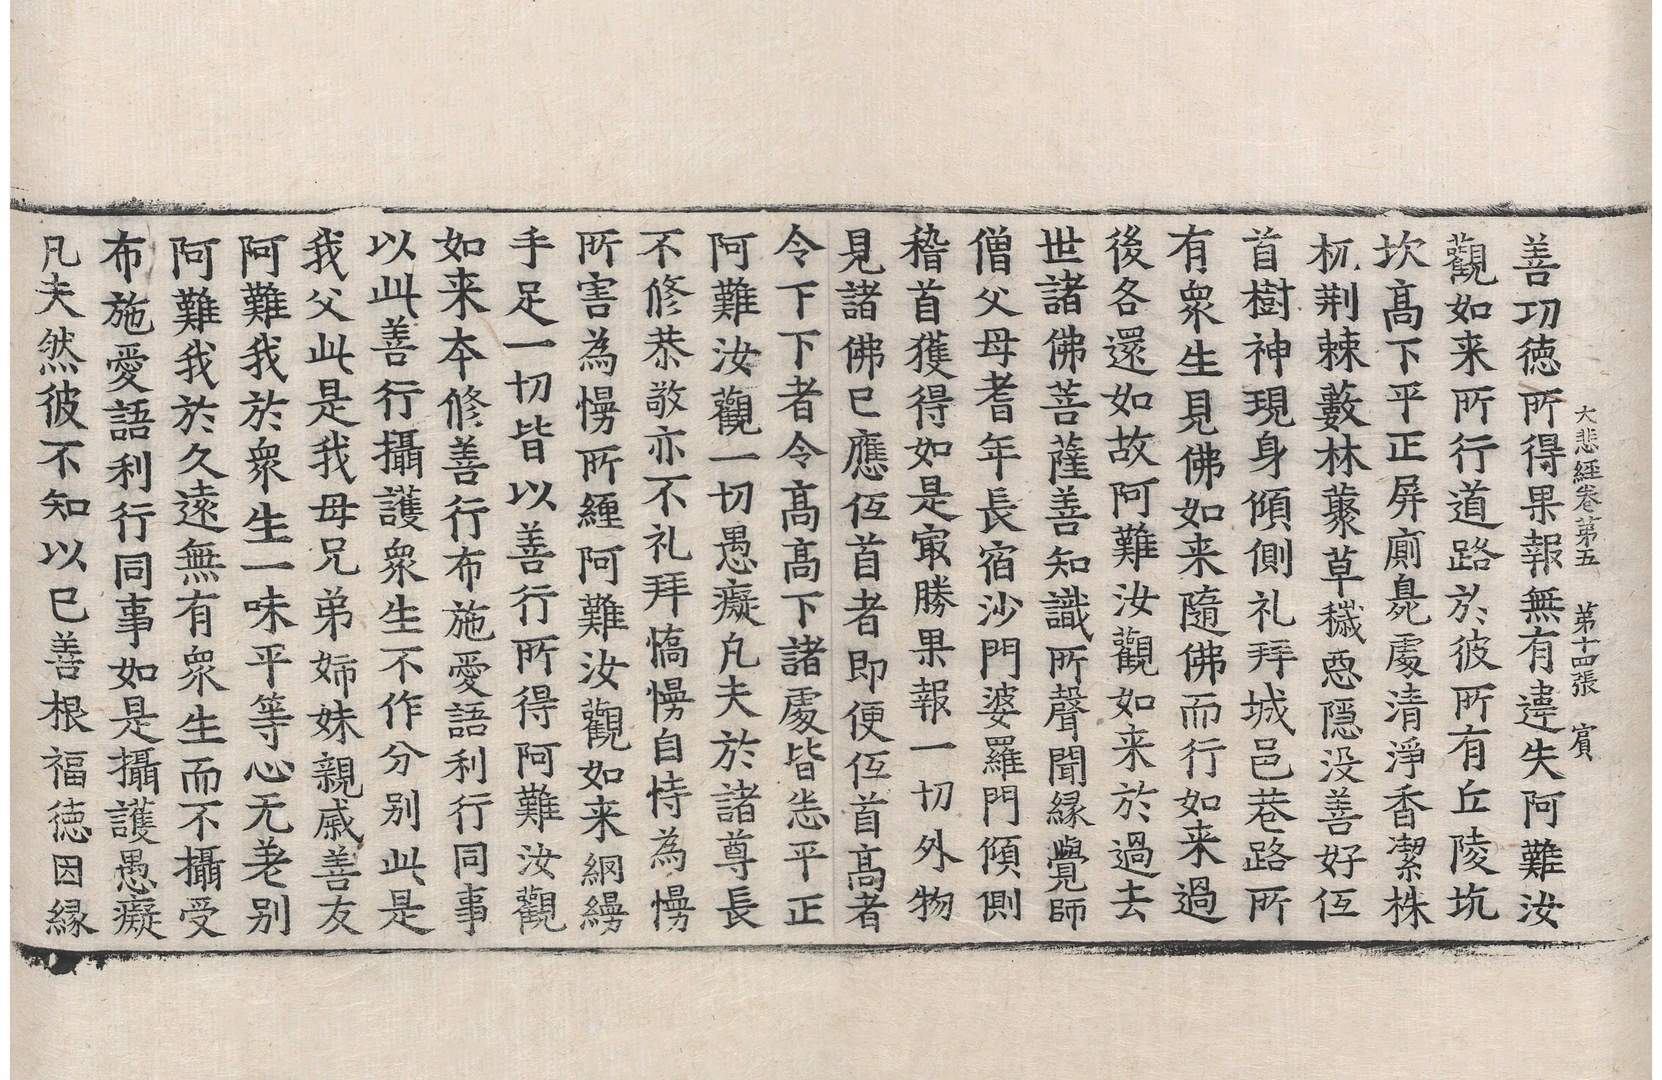 大悲經卷第五　第十四張　賓
善功徳所得果報無有違失阿難汝
觀如来所行道路於彼所有丘陵坑
坎髙下平正屏廁臰處清淨香潔株
杌荆棘藪林蘽草穢惡隱没善好仾
首樹神現身傾側礼拜城邑巷路所
有衆生見佛如来隨佛而行如来過
後各還如故阿難汝觀如来於過去
世諸佛菩薩善知識所聲聞縁覺師
僧父母耆年長宿沙門婆羅門傾側
稽首獲得如是㝡勝果報一切外物
見諸佛已應仾首者即便仾首髙者
令下下者令髙髙下諸處皆悉平正
阿難汝觀一切愚癡凡夫於諸尊長
不修恭敬亦不礼拜憍慢自恃為慢
所害為慢所纏阿難汝觀如来網縵
手足一切皆以善行所得阿難汝觀
如来夲修善行布施愛語利行同事
以此善行攝護衆生不作分别此是
我父此是我母兄弟姉妹親戚善友
阿難我於衆生一味平等心无差别
阿難我於久遠無有衆生而不攝受
布施愛語利行同事如是攝護愚癡
凡夫然彼不知以已善根福徳因縁